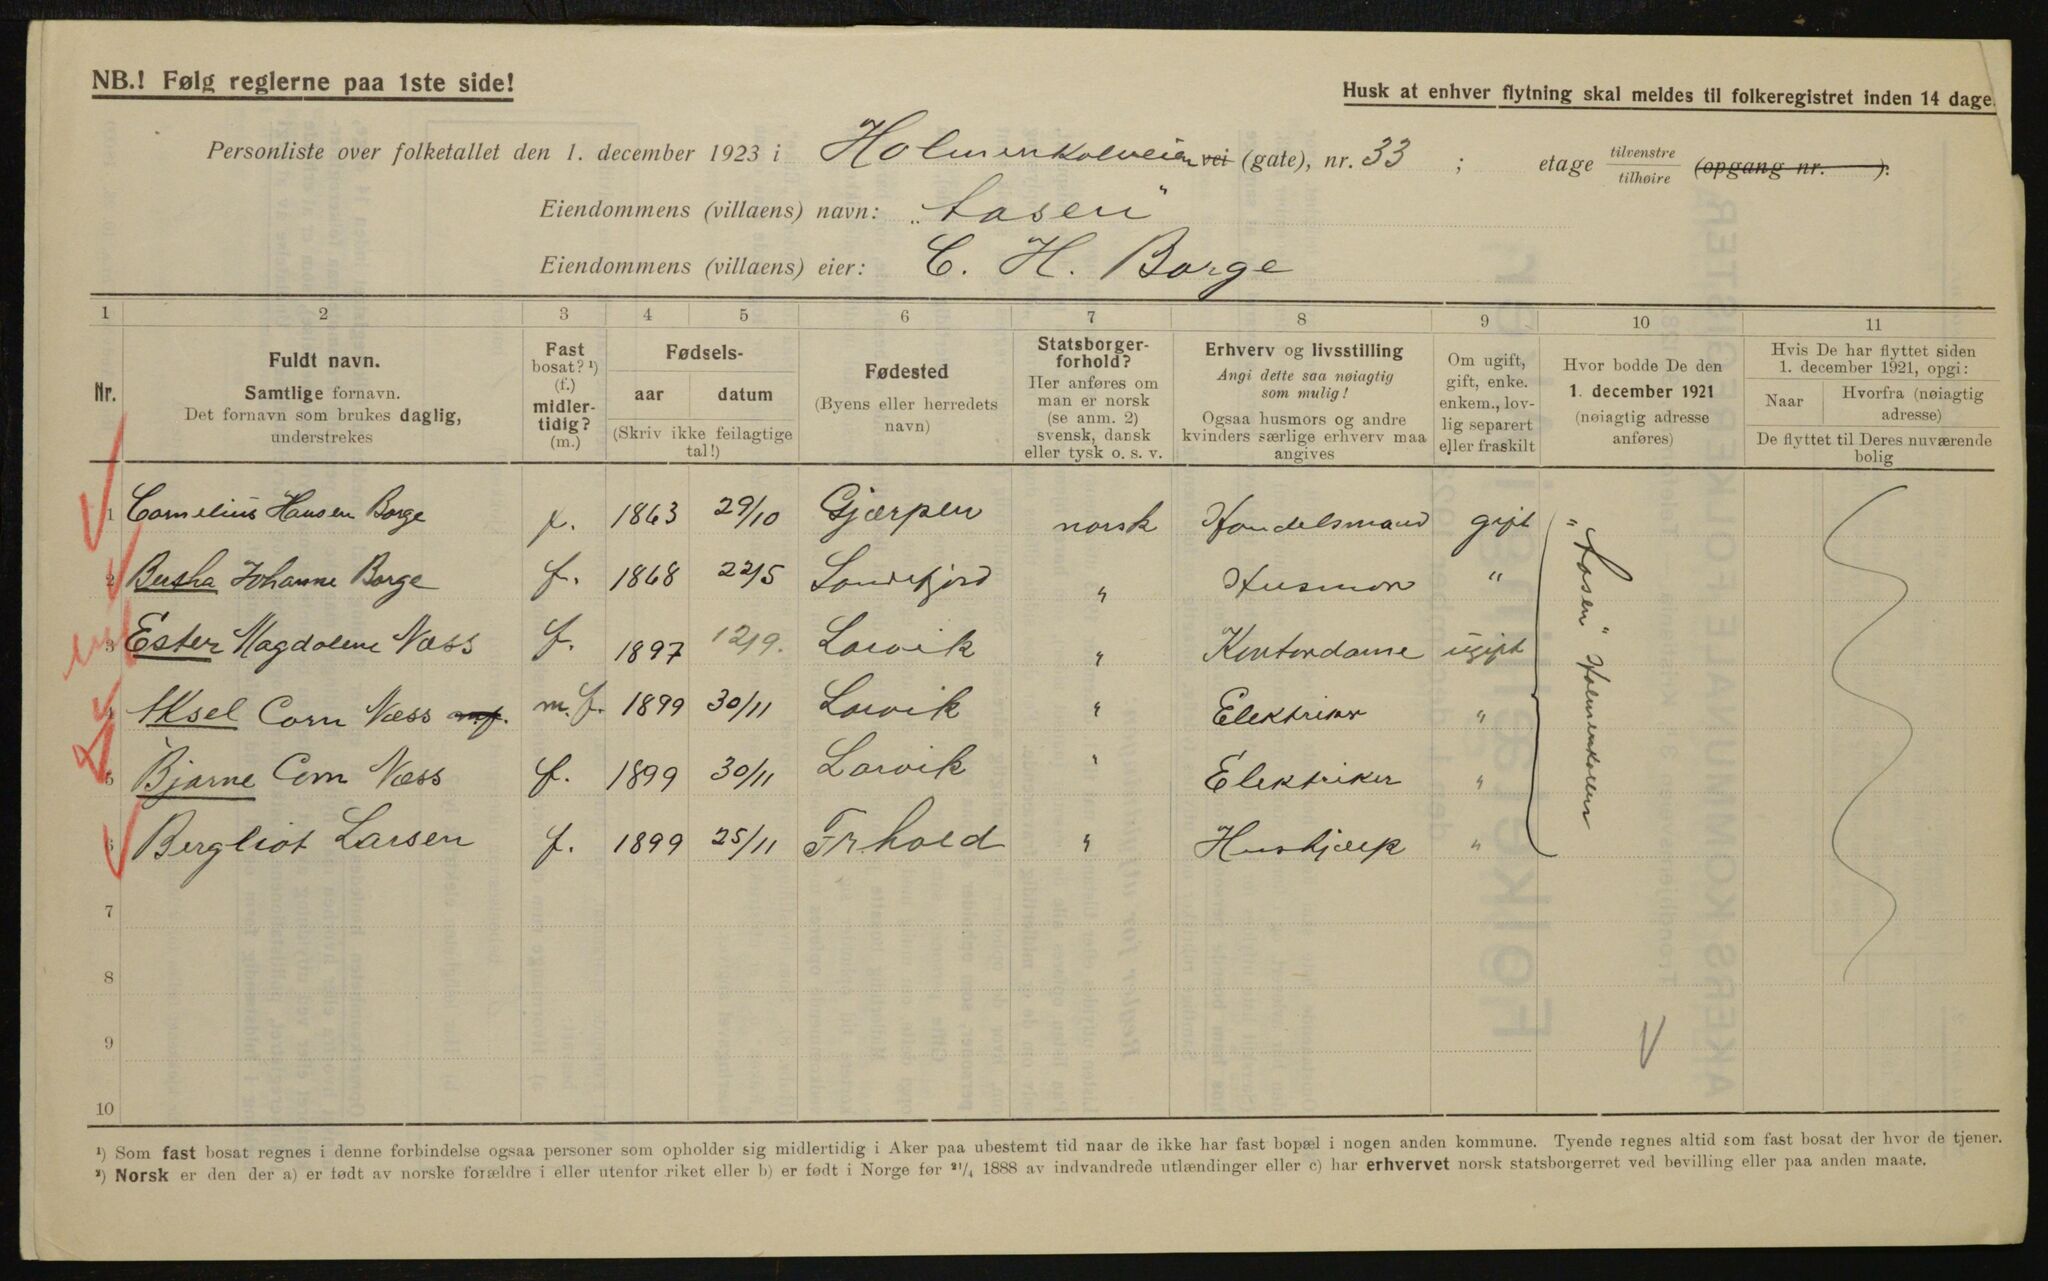 NB.! Følg reglerne paa 1ste side!
Husk at enhver flytning skal meldes til folkeregistret inden 14 dage.
Personliste over folketallet den 1. december 1923 i Holmenkolveien vei (gate), nr. 33 ; etage tilvenstre tilhøire (opgang nr. ).
Eiendommens (villaens) navn: „Aasen"
Eiendommens (villaens) eier: C. H. Borge
1 2 3 4 5 6 7 8 9 10 11
Nr.
Fuldt navn.
Samtlige fornavn.
Det fornavn som brukes daglig,
understrekes
Fast
bosat? ¹)
(f.)
midler-
tidig?
(m.)
Fødsels-
aar datum
(Skriv ikke feilagtige
tal!)
Fødested
(Byens eller herredets
navn)
Statsborger-
forhold?
Her anføres om
man er norsk
(se anm. 2)
svensk, dansk
eller tysk o. s. v.
Erhverv og livsstilling
Angi dette saa nøiagtig
som mulig!
Ogsaa husmors og andre
kvinders særlige erhverv maa
angives
Om ugift,
gift, enke.
enkem., lov-
lig separert
eller fraskilt
Hvor bodde De den
1. december 1921
(nøiagtig adresse
anføres)
Hvis De har flyttet siden
1. december 1921, opgi:
Naar Hvorfra (nøiagtig
adresse)
De flyttet til Deres nuværende
bolig
1 Cornelius Hansen Borge f. 1863 29/10 Gjærpen norsk Handelsmand gift
2 Bertha Johanne Borge f. 1868 22/5 Sandefjord " Husmor "
3 Ester Magdalene Næss f. 1897 12/9. Larvik " Kontordame ugift
4 Aksel Corn Næss m.f. m. f. 1899 30/11 Larvik " Elektriker "
5 Bjarne Corn Næss f. 1899 30/11 Larvik " Elektriker "
6 Bergliot Larsen f. 1899 25/11 Frhold " Hushjælp "
„Aasen" Holmenkollen
7
8
9
10
¹) Som fast bosat regnes i denne forbindelse ogsaa personer som opholder sig midlertidig i Aker paa ubestemt tid naar de ikke har fast bopæl i nogen anden kommune. Tyende regnes altid som fast bosat der hvor de tjener.
²) Norsk er den der a) er født av norske forældre i eller utenfor riket eller b) er født i Norge før ²¹/₄ 1888 av indvandrede utlændinger eller c) har erhvervet norsk statsborgerret ved bevilling eller paa anden maate.